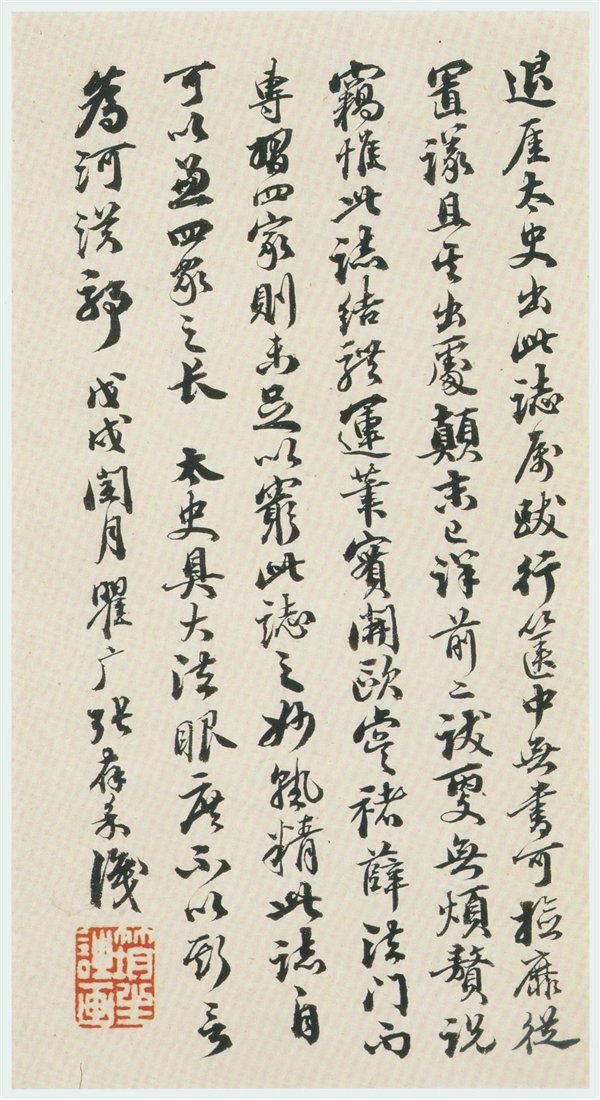 退厓太史出此誌属跋行篋中無書可檢靡從
置議且其出處顛末已詳前二跋更無煩贅説
竊惟此誌結體運筆實開歐虞褚薛法門而
專習四家則未足以窮此誌之妙孰精此誌自
可以兼四家之长 太史具大法眼庶不以斯言
為河漢耶 戊戌閏月瞿广張
識